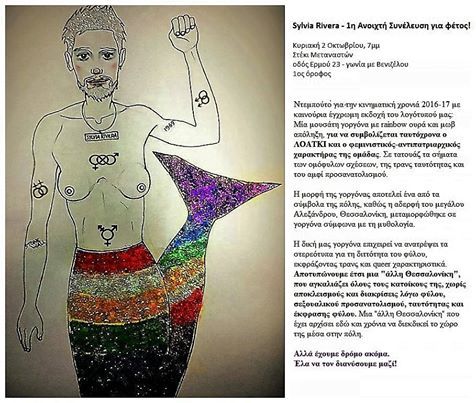 Sylvia Rivera - 1η Ανοιχτή Συνέλευση για φέτος!
Κυριακή 2 Οκτωβρίου, 7μμ
Στέκι Μεταναστών
οδός Ερμού 23 - γωνία με Βενιζέλου
1ος όροφος
Ντεμπούτο για την κινηματική χρονιά 2016-17 με
καινούρια έγχρωμη εκδοχή του λογότυπού μας:
Μία μουσάτη γοργόνα με rainbow ουρά και μωβ
απόληξη, για να συμβολίζεται ταυτόχρονα ο
ΛΟΑΤΚΙ και ο φεμινιστικός-αντιπατριαρχικός
χαρακτήρας της ομάδας. Σε τατουάζ τα σήματα
των ομόφυλων σχέσεων, της τρανς ταυτότητας και
του αμφί προσανατολισμού.
Η μορφή της γοργόνας αποτελεί ένα από τα
σύμβολα της πόλης, καθώς η αδερφή του μεγάλου
Αλεξάνδρου, Θεσσαλονίκη, μεταμορφώθηκε σε
γοργόνα σύμφωνα με τη μυθολογία.
Η δική μας γοργόνα επιχειρεί να ανατρέψει τα
στερεότυπα για τη διττότητα του φύλου,
εκφράζοντας τρανς και queer χαρακτηριστικά.
Αποτυπώνουμε έτσι μια "άλλη Θεσσαλονίκη",
που αγκαλιάζει όλους τους κατοίκους της, χωρίς
αποκλεισμούς και διακρίσεις λόγω φύλου,
σεξουαλικού προσανατολισμού, ταυτότητας και
έκφρασης φύλου. Μια "άλλη Θεσσαλονίκη" που
έχει αρχίσει εδώ και χρόνια να διεκδικεί το χώρο
της μέσα στην πόλη.
Αλλά έχουμε δρόμο ακόμα.
Έλα να τον διανύσουμε μαζί!
SYLVIA RIVERA
1969